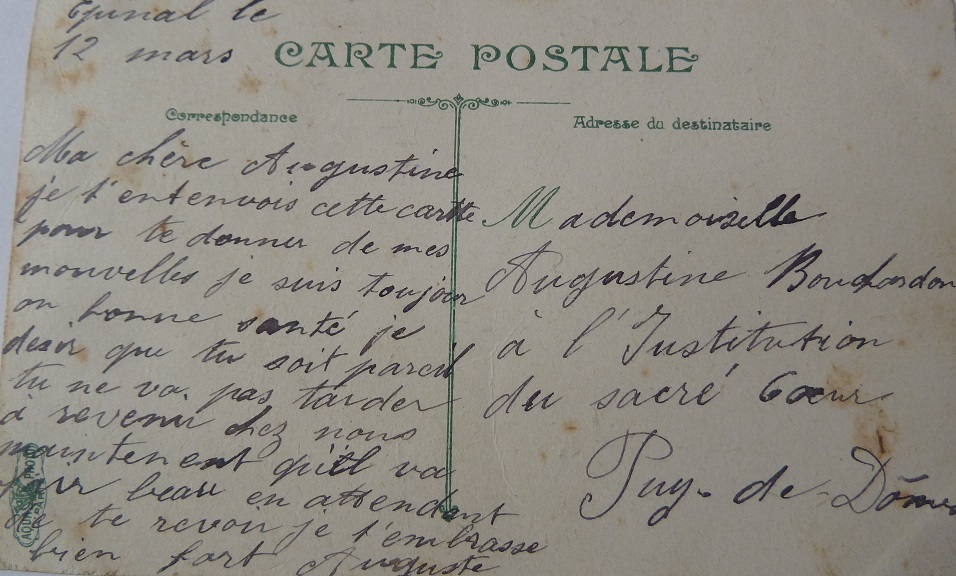 Epinal le
12 mars
CARTE POSTALE
Correspondance
Adresse du destinataire
Ma chère Augustine
je t'entenvois cette cartte
pour te donner de mes
nouvelles je suis toujour
on bonne santé je
désir que tu soit pareil
tu ne va pas tarder
à revenir chez nous
maintenent qu'il va
fair beau en attendant
de te revoir je t'embrasse
bien fort Auguste
Mademoiselle
Augustine Bouchardon
à l'Institution
du sacré Cœur
Puy-de-Dôme